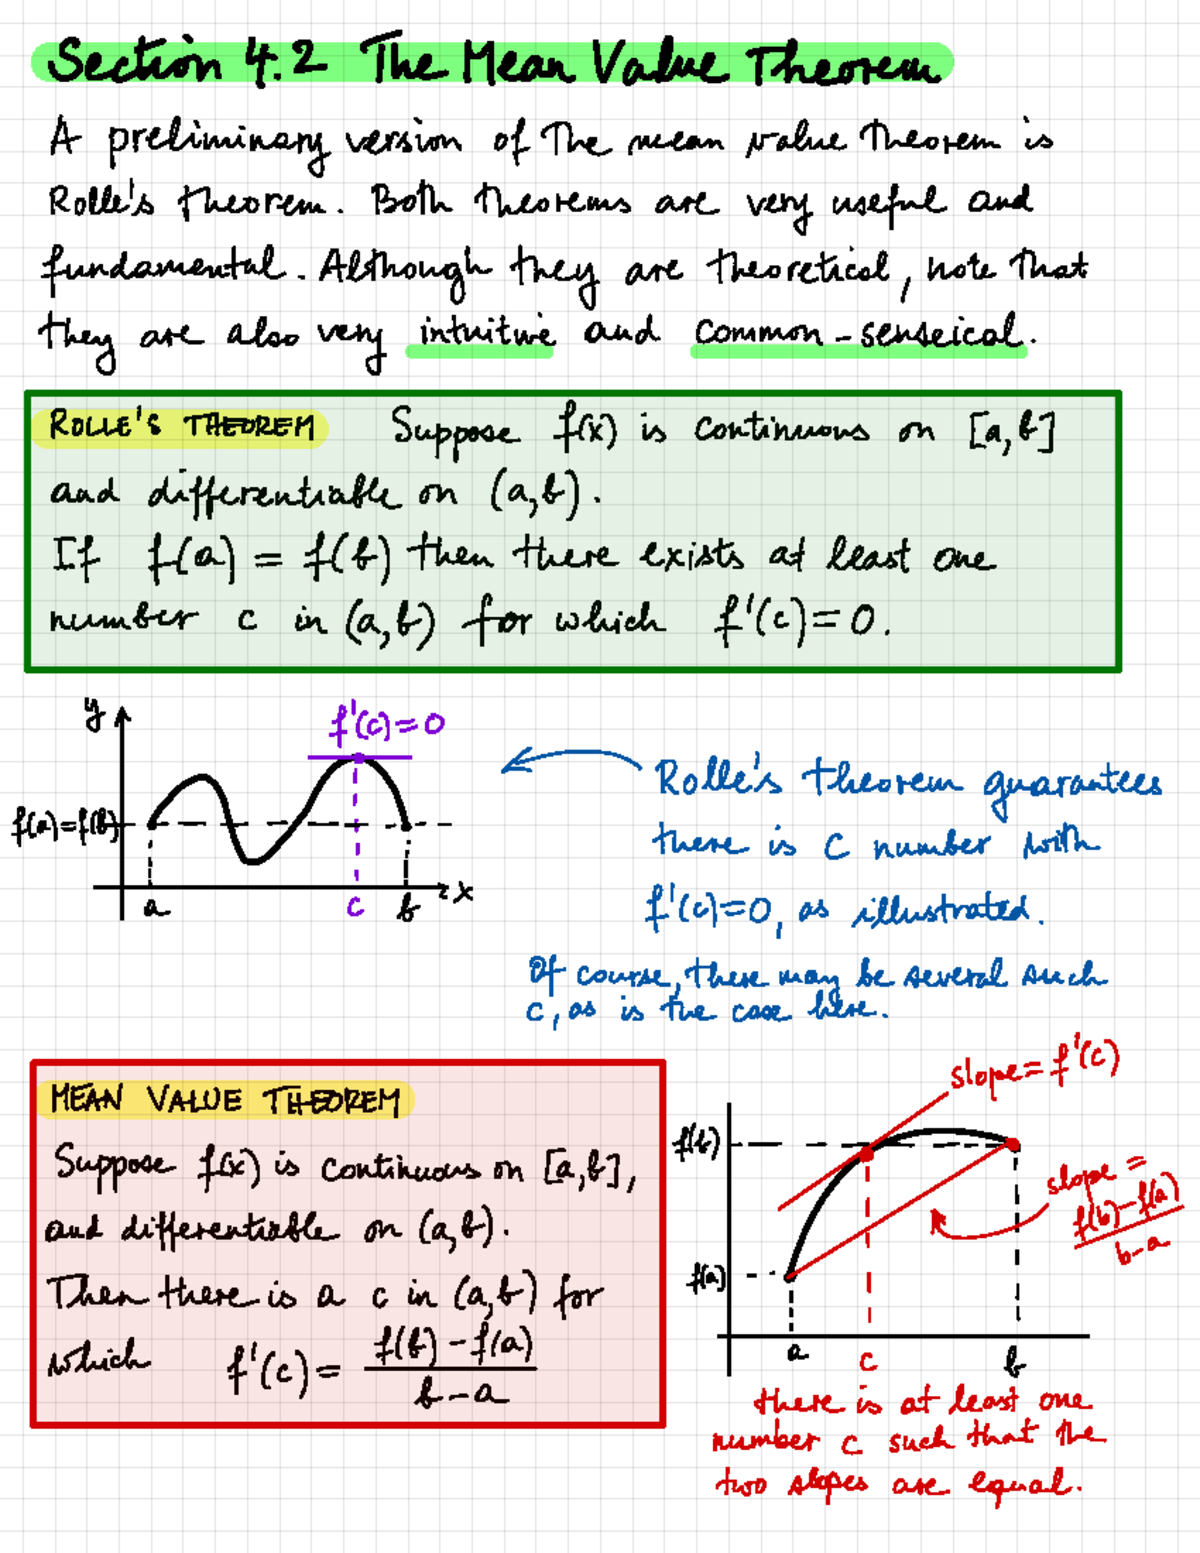 Section 4.2 The Mean Value Theorem
A preliminary version of the mean value theorem is
Rolle's theorem. Both theorems are very useful and
fundamental. Although they are theoretical, note that
they are also very intuitive and common-senseical.
ROLLE'S THEOREM Suppose f(x) is continuous on [a,b]
and differentiable on (a,b).
If f(a) = f(b) then there exists at least one
number c in (a,b) for which f'(c)=0.
y
f'(c)=0
f(a)=f(b)
x
a
c
b
Rolle's theorem guarantees
there is c number with
f'(c)=0, as illustrated.
Of course, there may be several such
c, as is the case here.
MEAN VALUE THEOREM
Suppose f(x) is continuous on [a,b],
and differentiable on (a,b).
Then there is a c in (a,b) for
which f'(c) = f(b) - f(a)
b-a
slope = f'(c)
f(b)
slope =
f(b)-f(a)
b-a
f(a)
a
c
b
there is at least one
number c such that the
two slopes are equal.